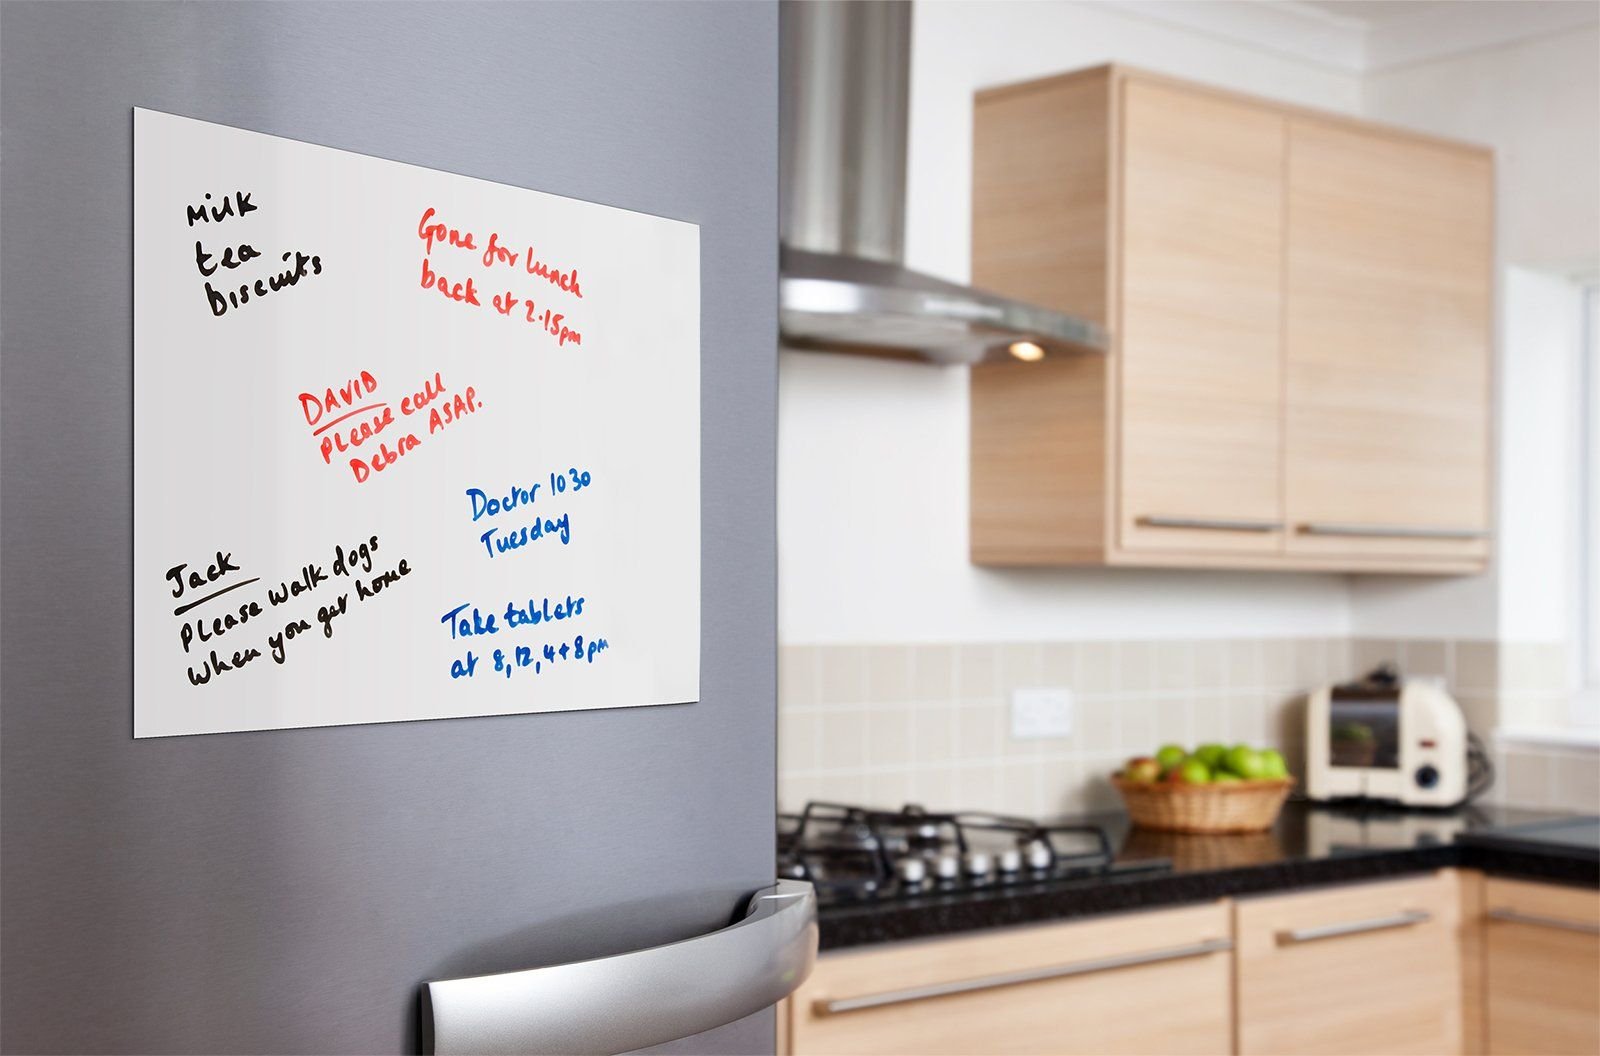 Milk
tea
biscuits
Gone for lunch
back at 2.15pm
DAVID
Please call
Debra ASAP.
Doctor 10 30
Tuesday
Jack
Please walk dogs
when you get home
Take tablets
at 8, 12, 4 + 8pm